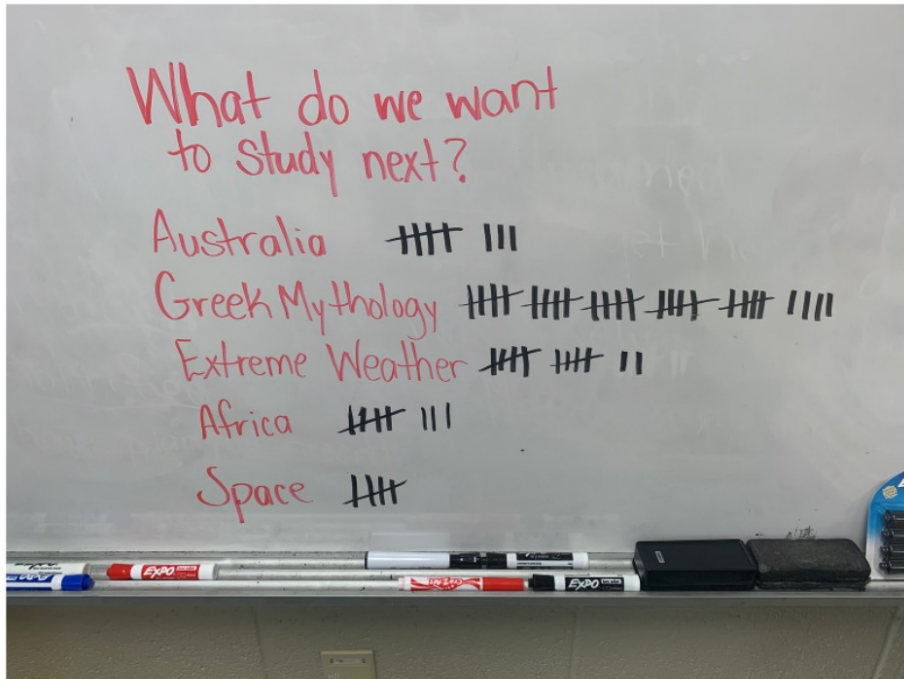 What do we want
to study next?
Australia 卌 |||
Greek Mythology 卌 卌 卌 卌 卌 ||||
Extreme Weather 卌 卌 ||
Africa 卌 |||
Space 卌
EXPO
EXPO